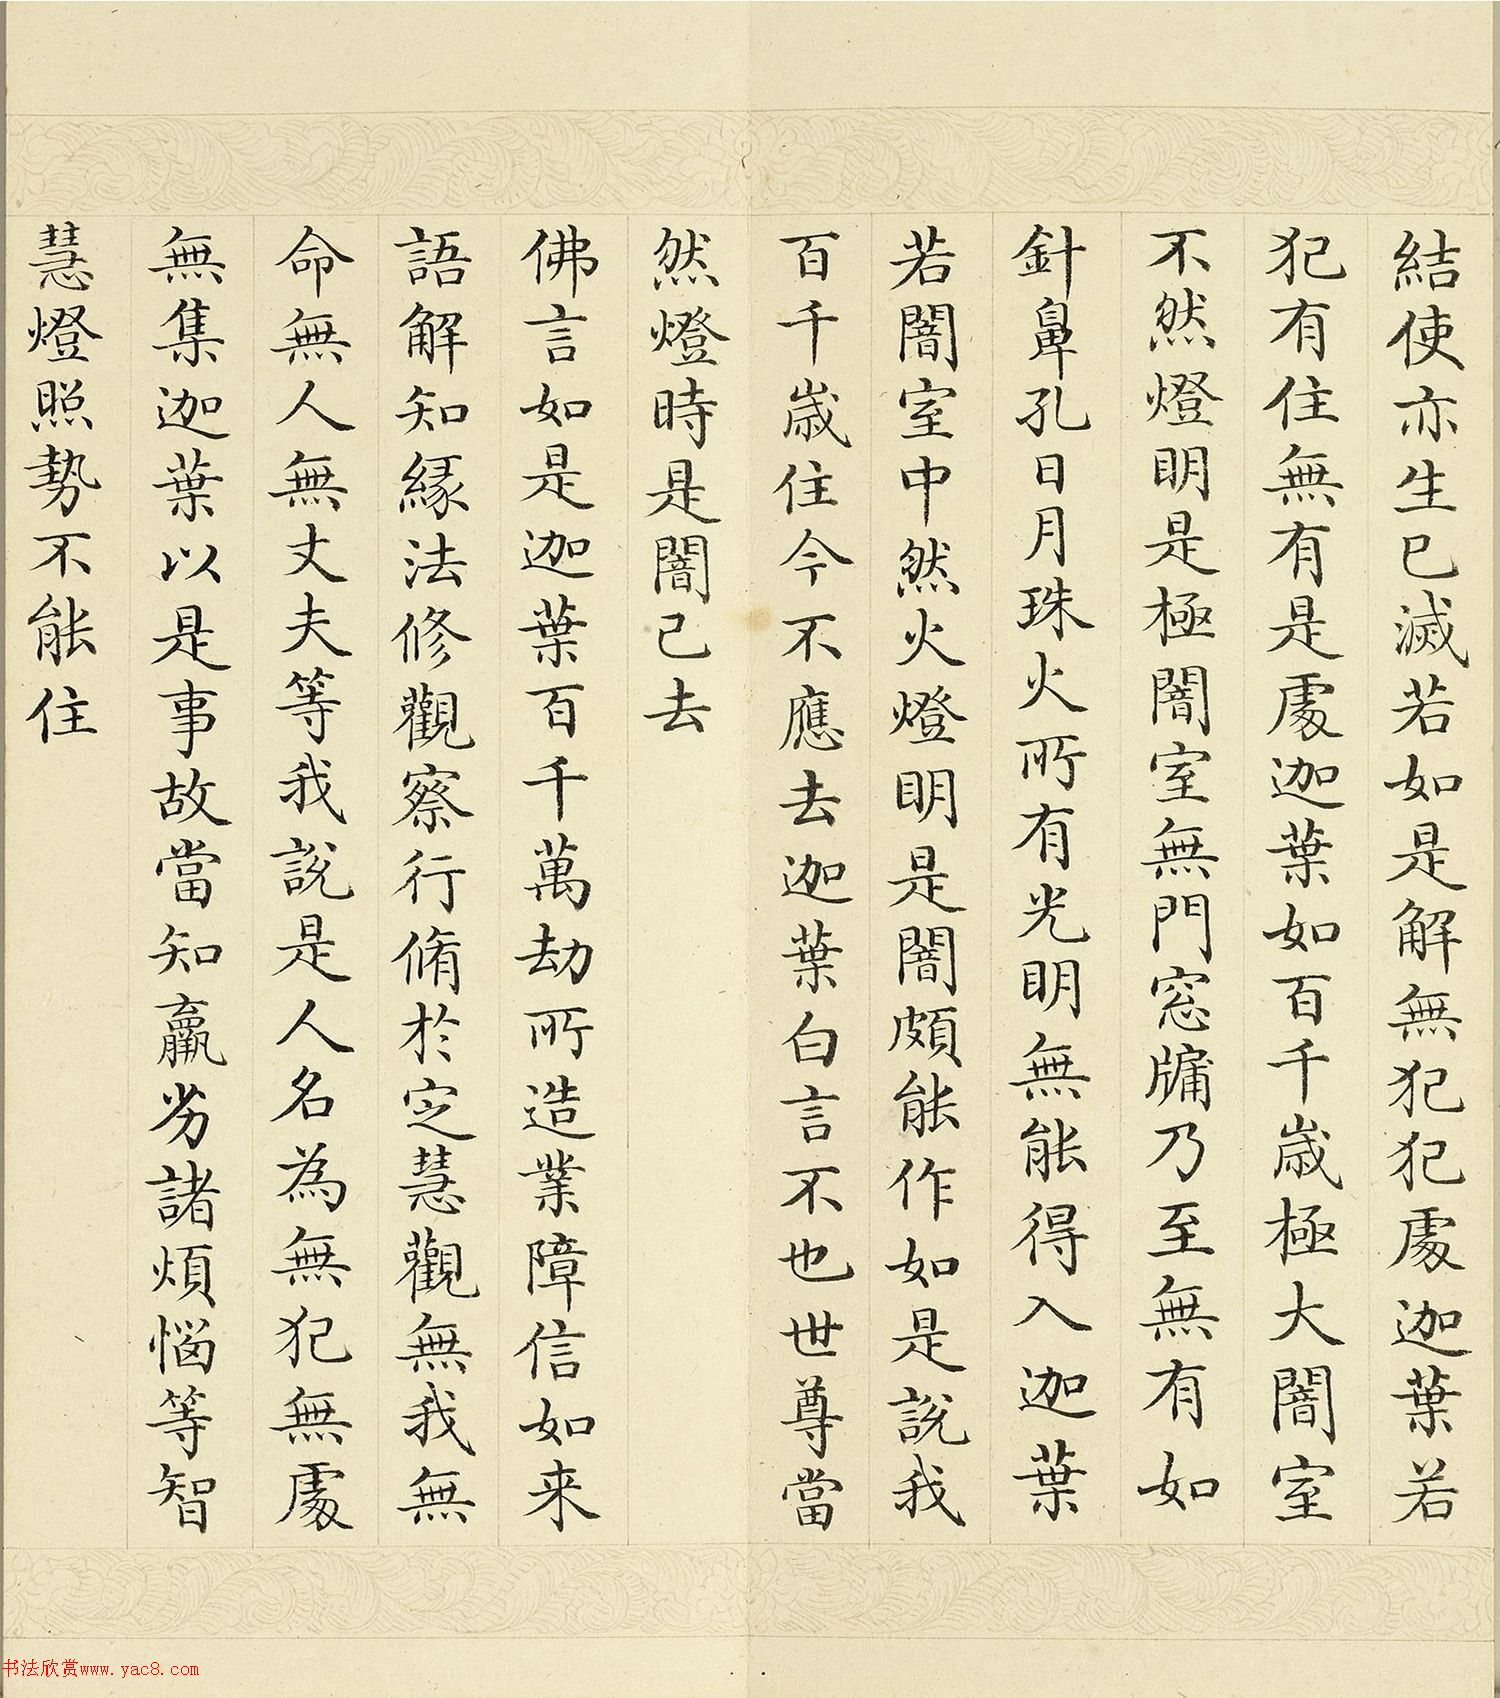 結使亦生已滅若如是解無犯犯處迦葉若
犯有住無有是處迦葉如百千歲極大闇室
不然燈明是極闇室無門窓牖乃至無有如
針鼻孔日月珠火所有光明無能得入迦葉
若闇室中然火燈明是闇頗能作如是說我
百千歲住今不應去迦葉白言不也世尊當
然燈時是闇已去
佛言如是迦葉百千萬劫所造業障信如来
語解知緣法修觀察行脩於定慧觀無我無
命無人無丈夫等我說是人名為無犯無處
無集迦葉以是事故當知羸劣諸煩惱等智
慧燈照勢不能住
书法欣赏www.yac8.com